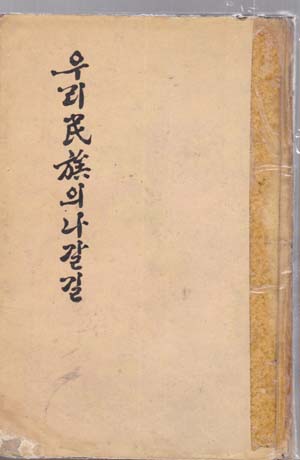 우리民族의나갈길